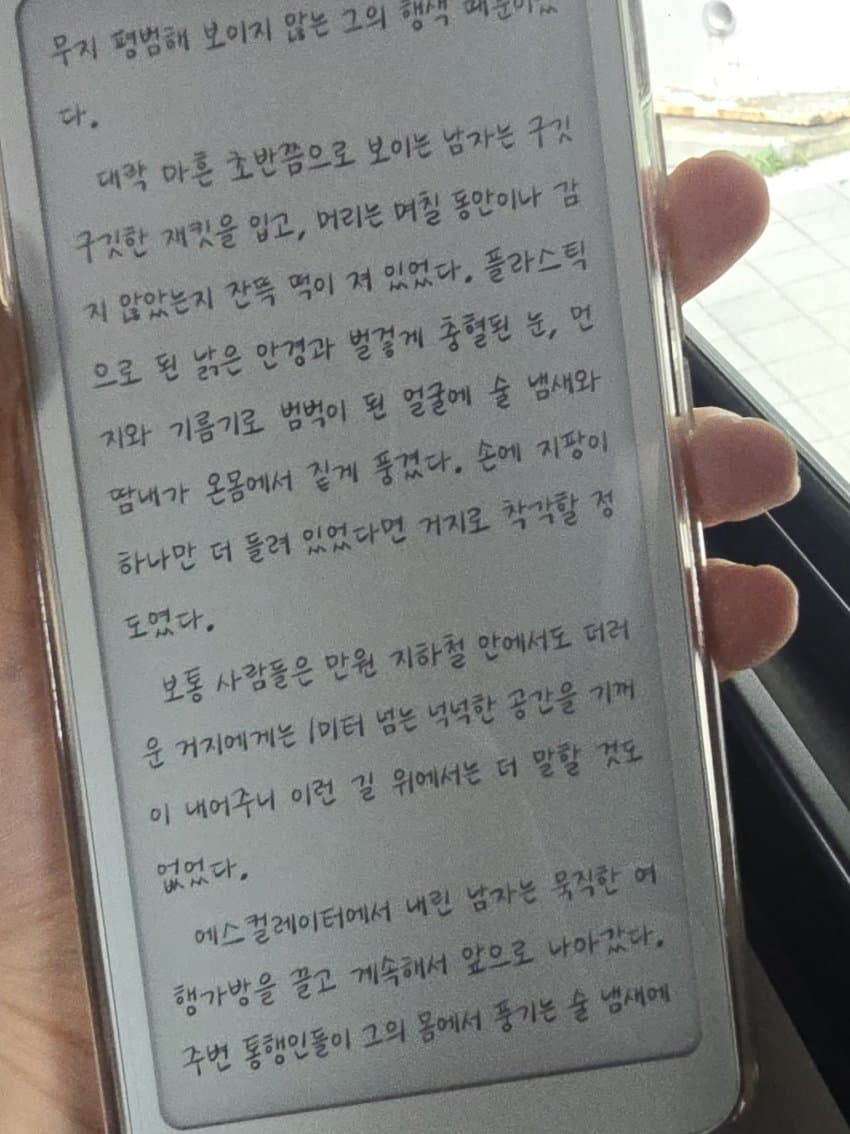 무지 평범해 보이지 않는 그의 행색 때문이었
다.
대략 마흔 초반쯤으로 보이는 남자는 구깃
구깃한 재킷을 입고, 머리는 며칠 동안이나 감
지 않았는지 잔뜩 떡이 져 있었다. 플라스틱
으로 된 낡은 안경과 벌겋게 충혈된 눈, 먼
지와 기름기로 범벅이 된 얼굴에 술 냄새와
땀내가 온몸에서 짙게 풍겼다. 손에 지팡이
하나만 더 들려 있었다면 거지로 착각할 정
도였다.
보통 사람들은 만원 지하철 안에서도 더러
운 거지에게는 1미터 넘는 넉넉한 공간을 기꺼
이 내어주니 이런 길 위에서는 더 말할 것도
없었다.
에스컬레이터에서 내린 남자는 묵직한 여
행가방을 끌고 계속해서 앞으로 나아갔다.
주변 통행인들이 그의 몸에서 풍기는 술 냄새에